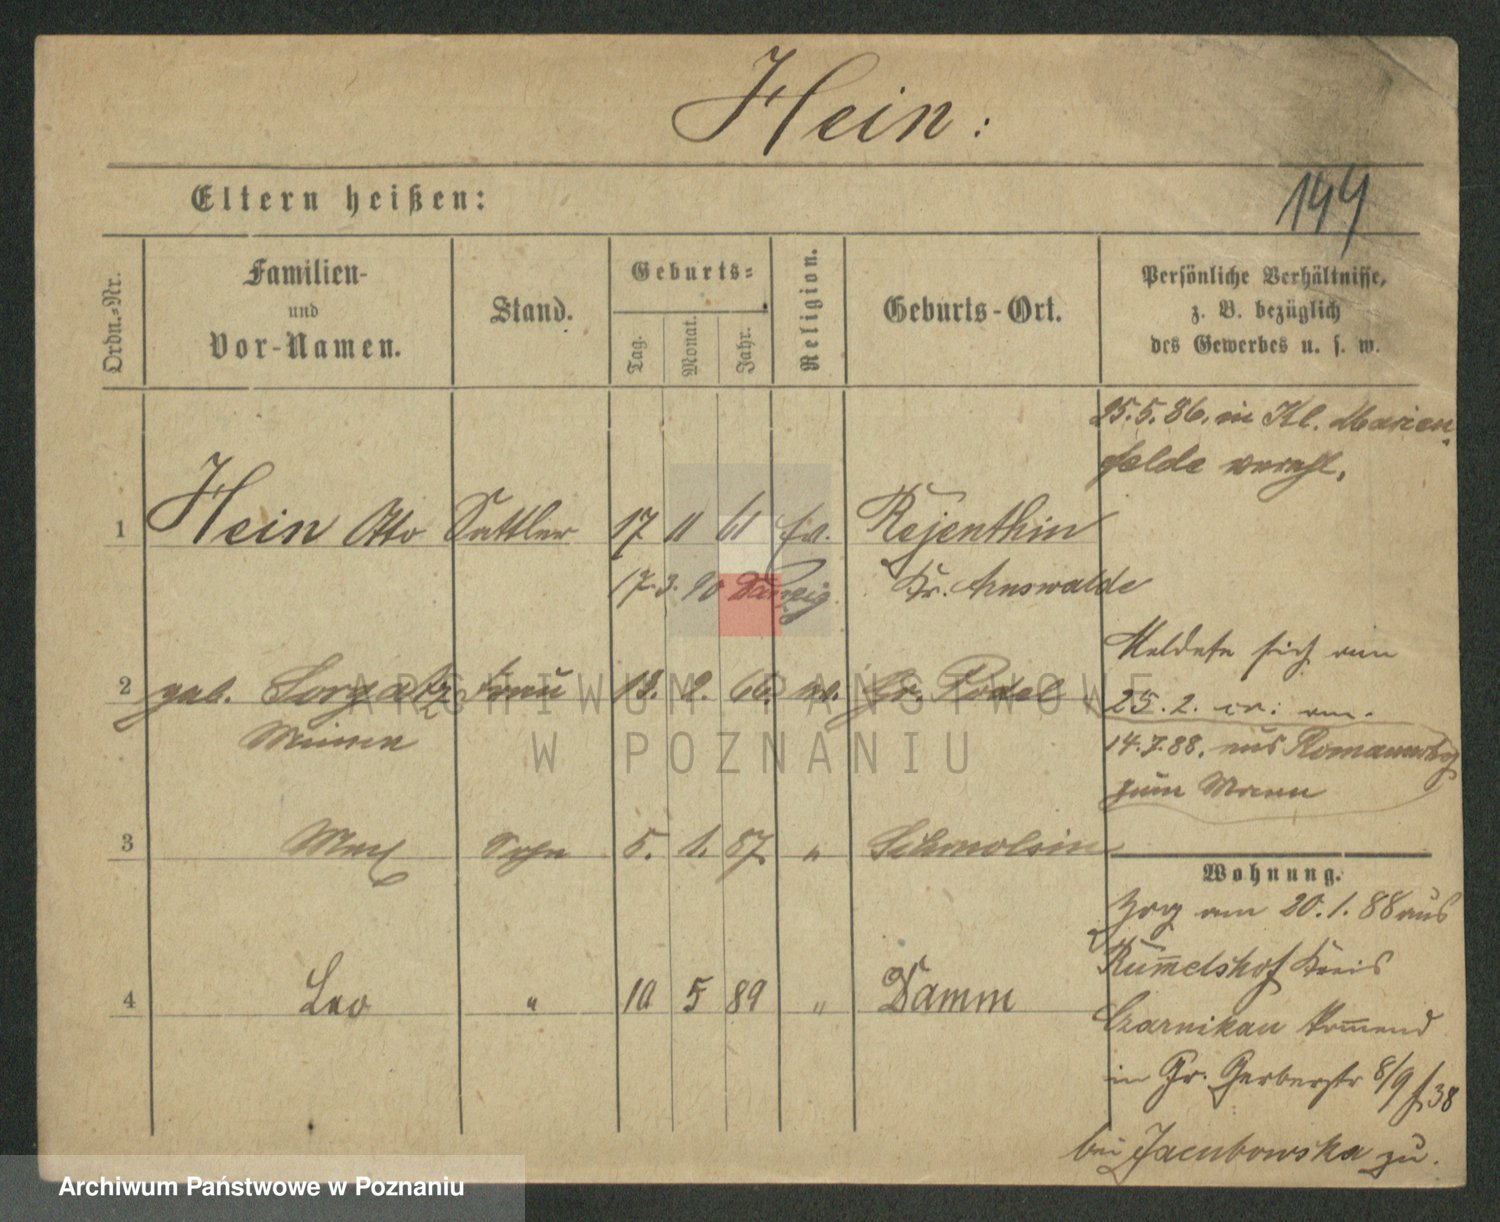 Hein:
Eltern heißen:
144
Ordn.-Nr.
Familien-
und
Vor-Namen.
Stand.
Geburts-
Tag.
Monat.
Jahr.
Religion.
Geburts-Ort.
Persönliche Verhältnisse,
z. B. bezüglich
des Gewerbes u. s. w.
25.5.86. in Kl. Marien-
felde verehl.
1 Hein Otto Sattler 17 11 61 ev. Rejenthin
17.3.90 Danzig Kr. Arnswalde
Meldete sich am
2 geb. Sorgatz Frau 13. 2. 66. ev. Gr. Podel
25.2. cr. an.
Minna
14.7.88. aus
zum Mann
3 Max Sohn 5. 1. 87 " Schmolsin
Wohnung.
Zog am 20.1.88 aus
Rum̅elshof Kreis
4 Leo " 10 5 89 " Damm
Czarnikau kom̅end
in Gr. Gerberstr 8/9 f. 38
bei Jacubowska zu.
ARCHIWUM PAŃSTWOWE
W POZNANIU
Archiwum Państwowe w Poznaniu